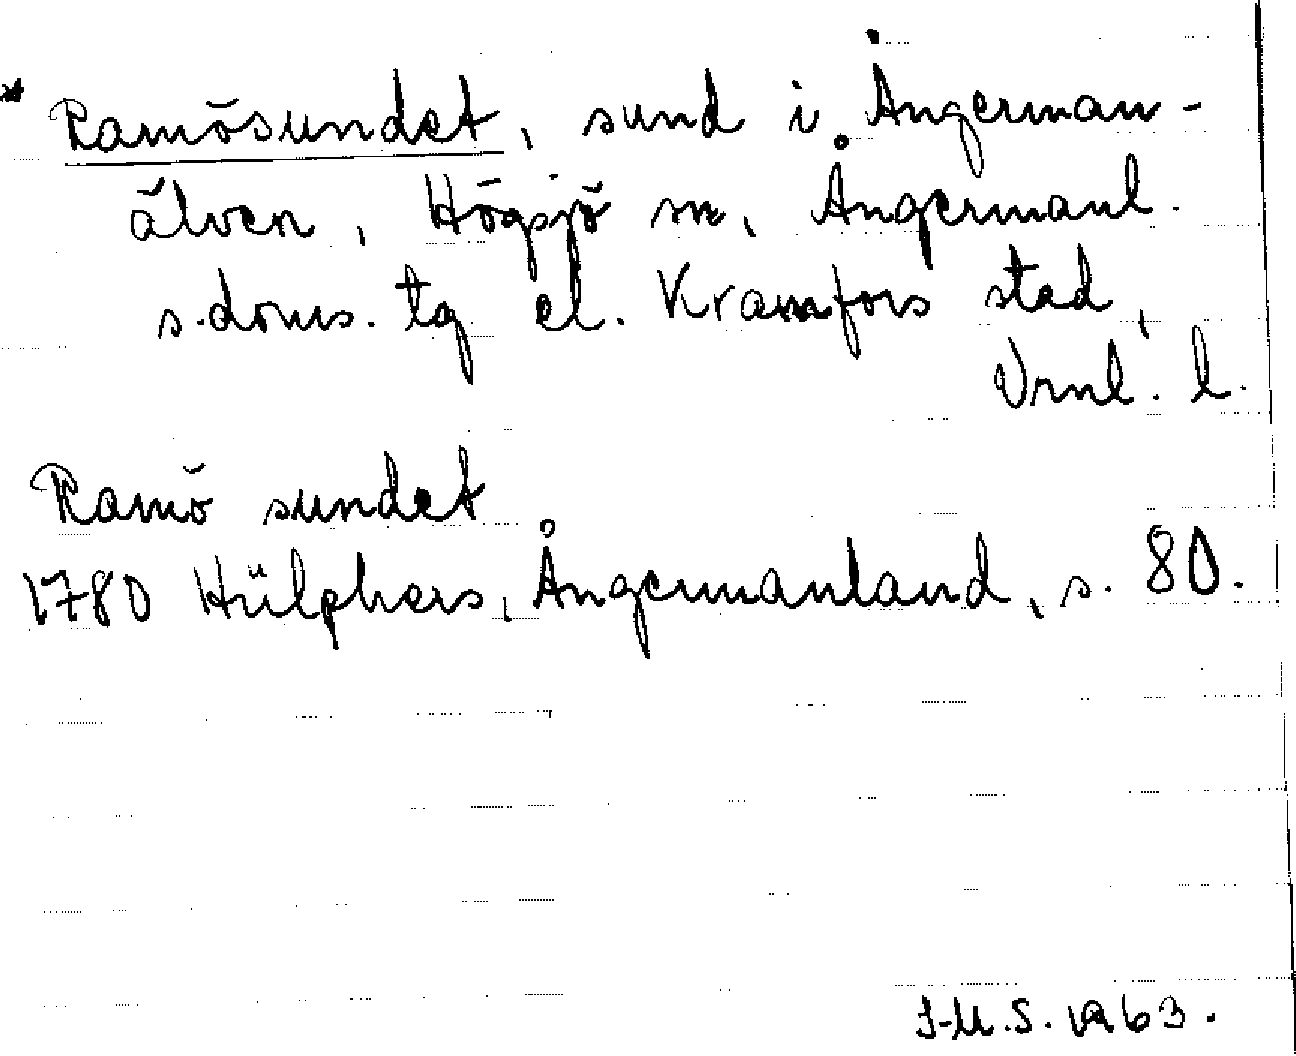 * Ramösundet, sund i Ångerman-
älven, Högsjö sn, Ångermanl.
s. doms. tg el. Kramfors stad,
Vrnl. l.
Ramö sundet
1780 Hülphers, Ångermanland, s. 80.
J-M.S. 1963.